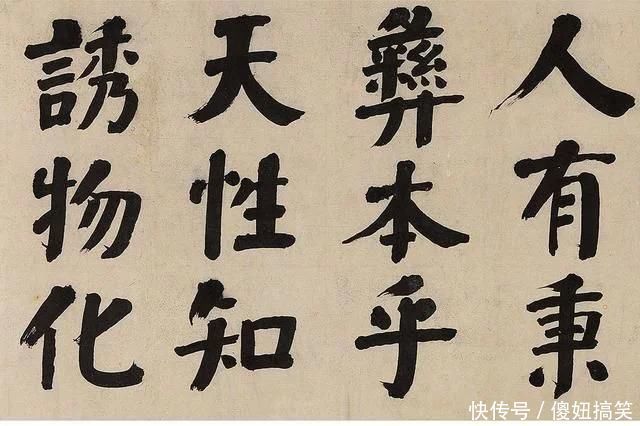 人有秉
彝本乎
天性知
誘物化
快传号／傻妞搞笑